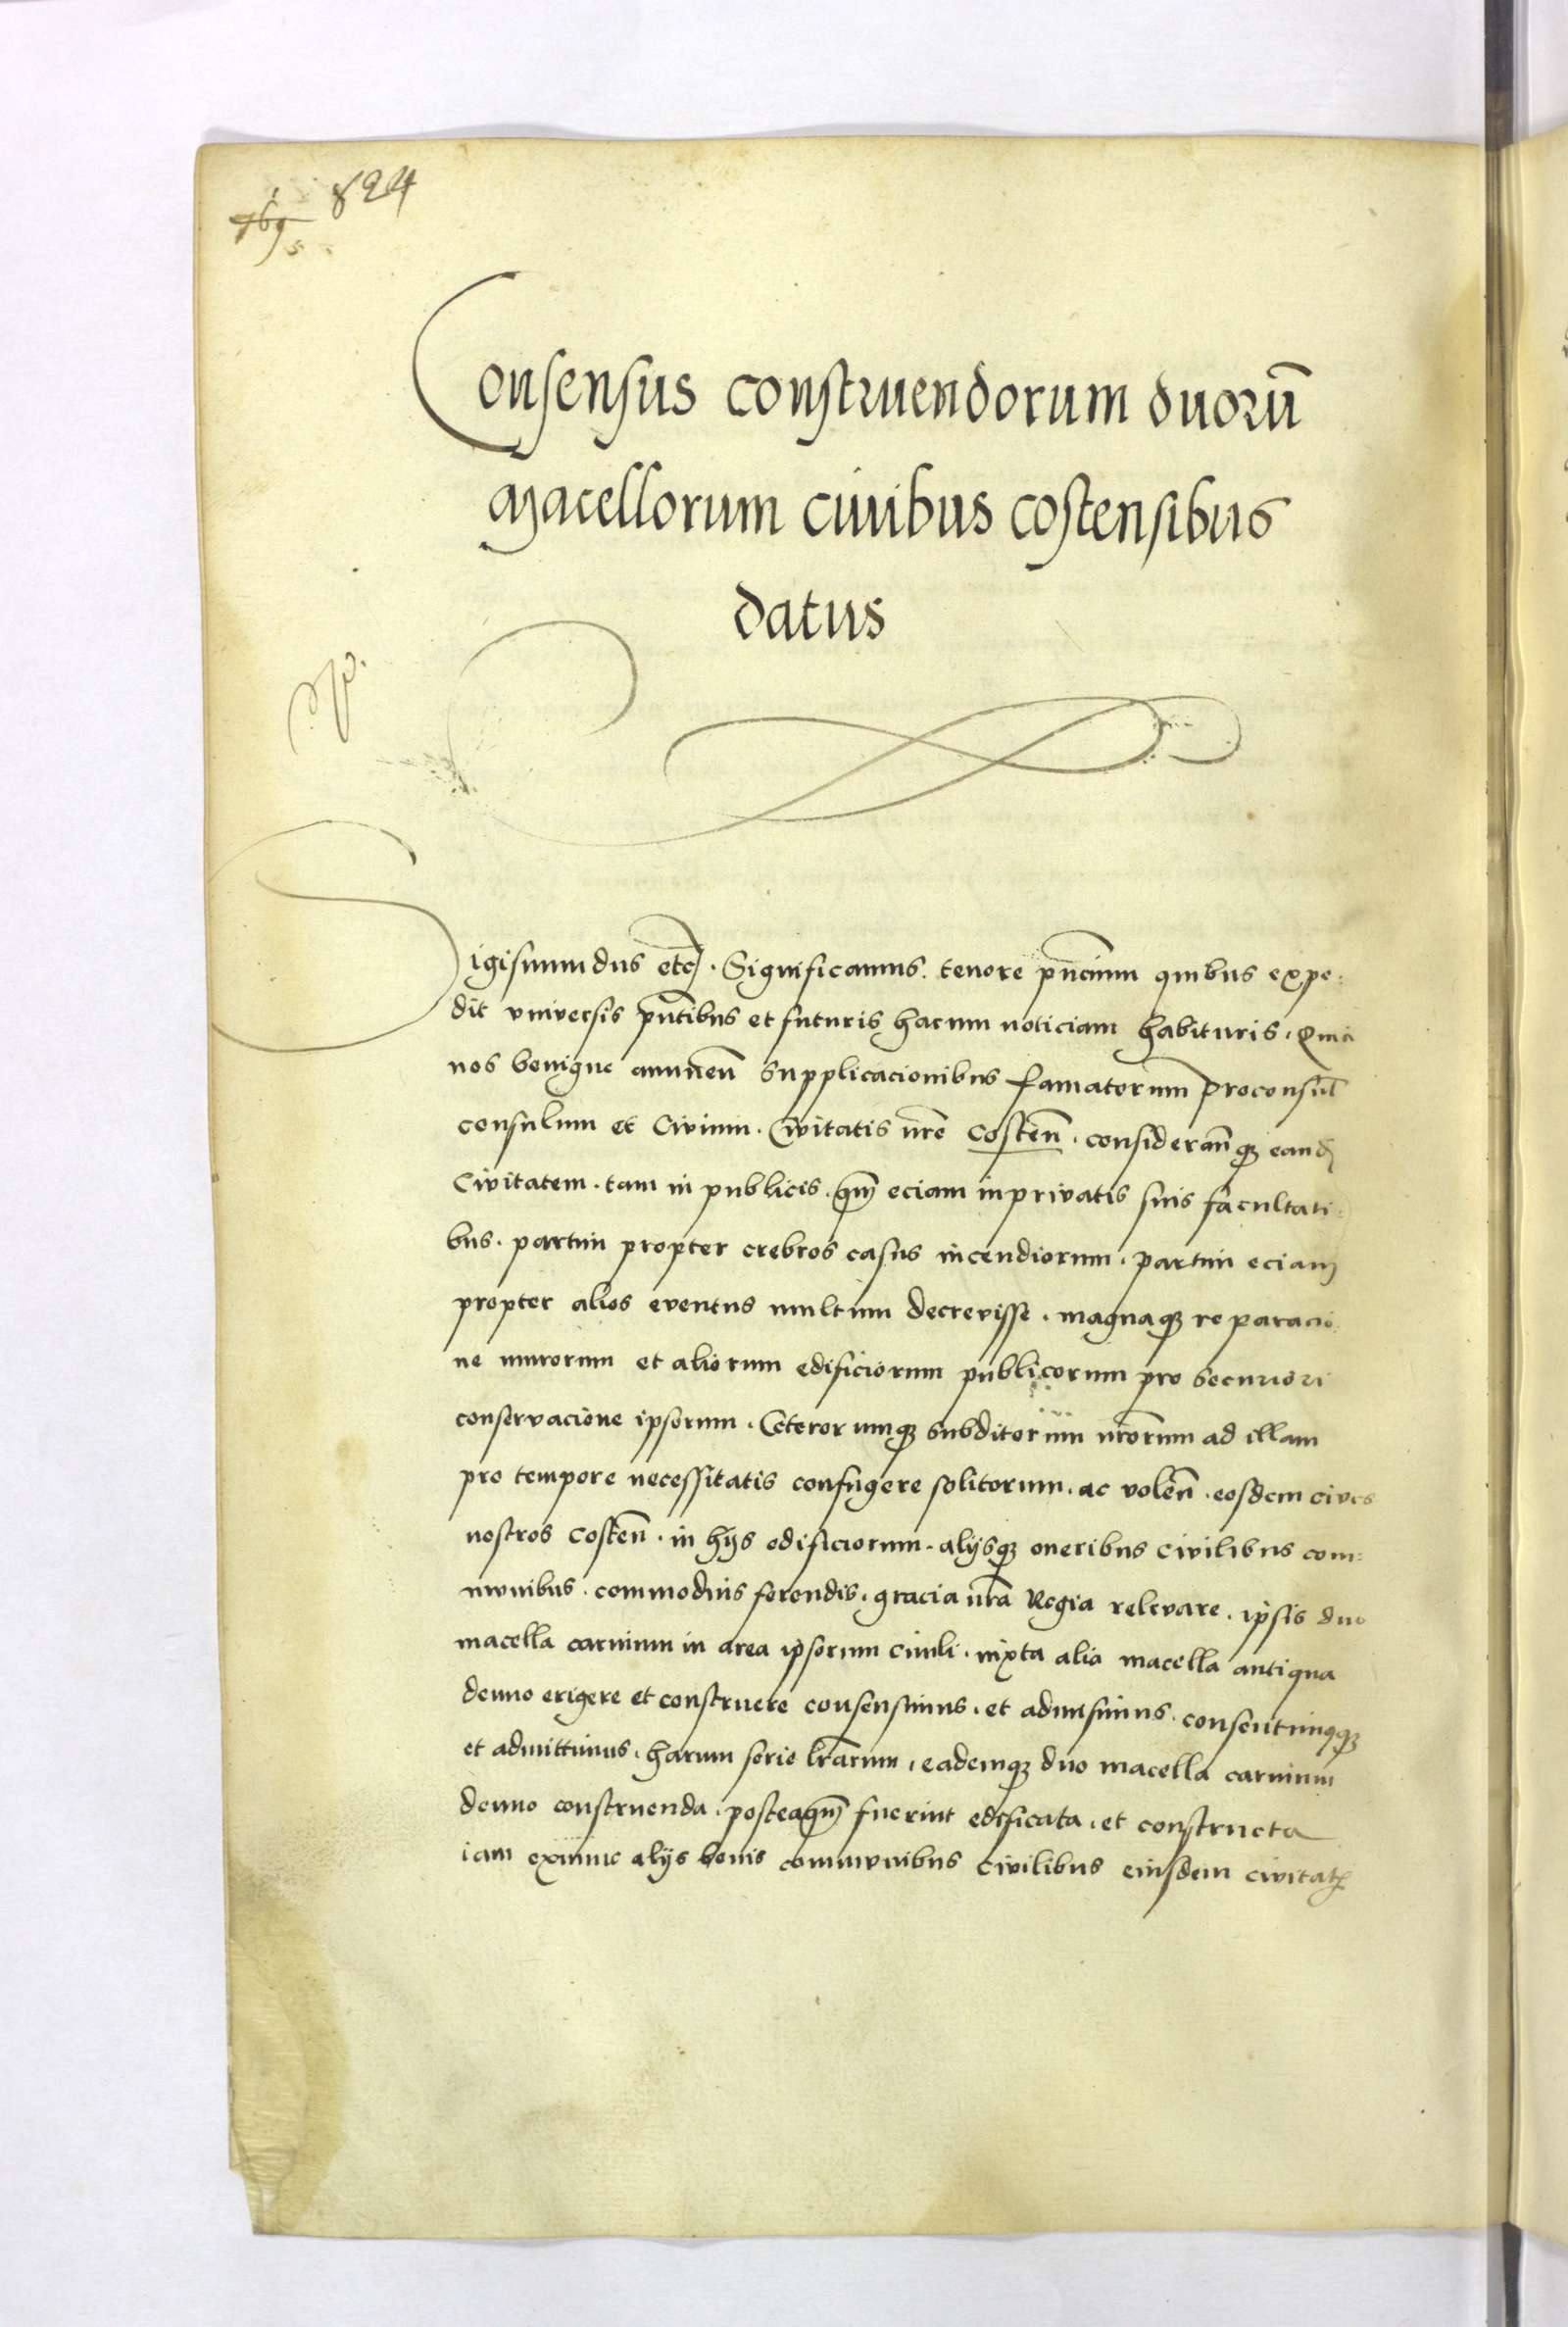 824
Consensus construendorum duorū
Macellorum civibus costensibus
datus
Sigismundus etc. Significamus. tenore pn̄cium quibus expe:
dit vniversis pn̄tibus et futuris harum noticiam habituris. Quia
nos benigne annuen̄ supplicacionibus famatorum proconsul̄
consulum et Civium. Civitatis nrē Costen̄. consideran̄q; eand
Civitatem. tam in publicis. qm̄ eciam in privatis suis facultati:
bus. partim propter crebros casus incendiorum. partim eciam
propter alios eventus multum decrevisse. magnaq; reparacio
ne murorum et aliorum edificiorum publicorum pro securiori
conservacione ipsorum. Ceterorumq; subditorum nrōrum ad illam
pro tempore necessitatis confugere solitorum. ac volen̄. eosdem cives
nostros Costen̄. in hijs edificiorum. alijsq; oneribus civilibus com:
munibus. commodius ferendis. gracia nrā Regia relevare. ipsis duo
macella carnium in area ipsorum civili. iuxta alia macella antiqua
denuo erigere et construere consensimus. et admisimus. consentimusq;
et admittimus. harum serie lrārum. eademq; duo macella carnium
denuo construenda. posteaqm̄ fuerint edificata. et constructa
iam extunc alijs bonis communibus civilibus eiusdem civitat